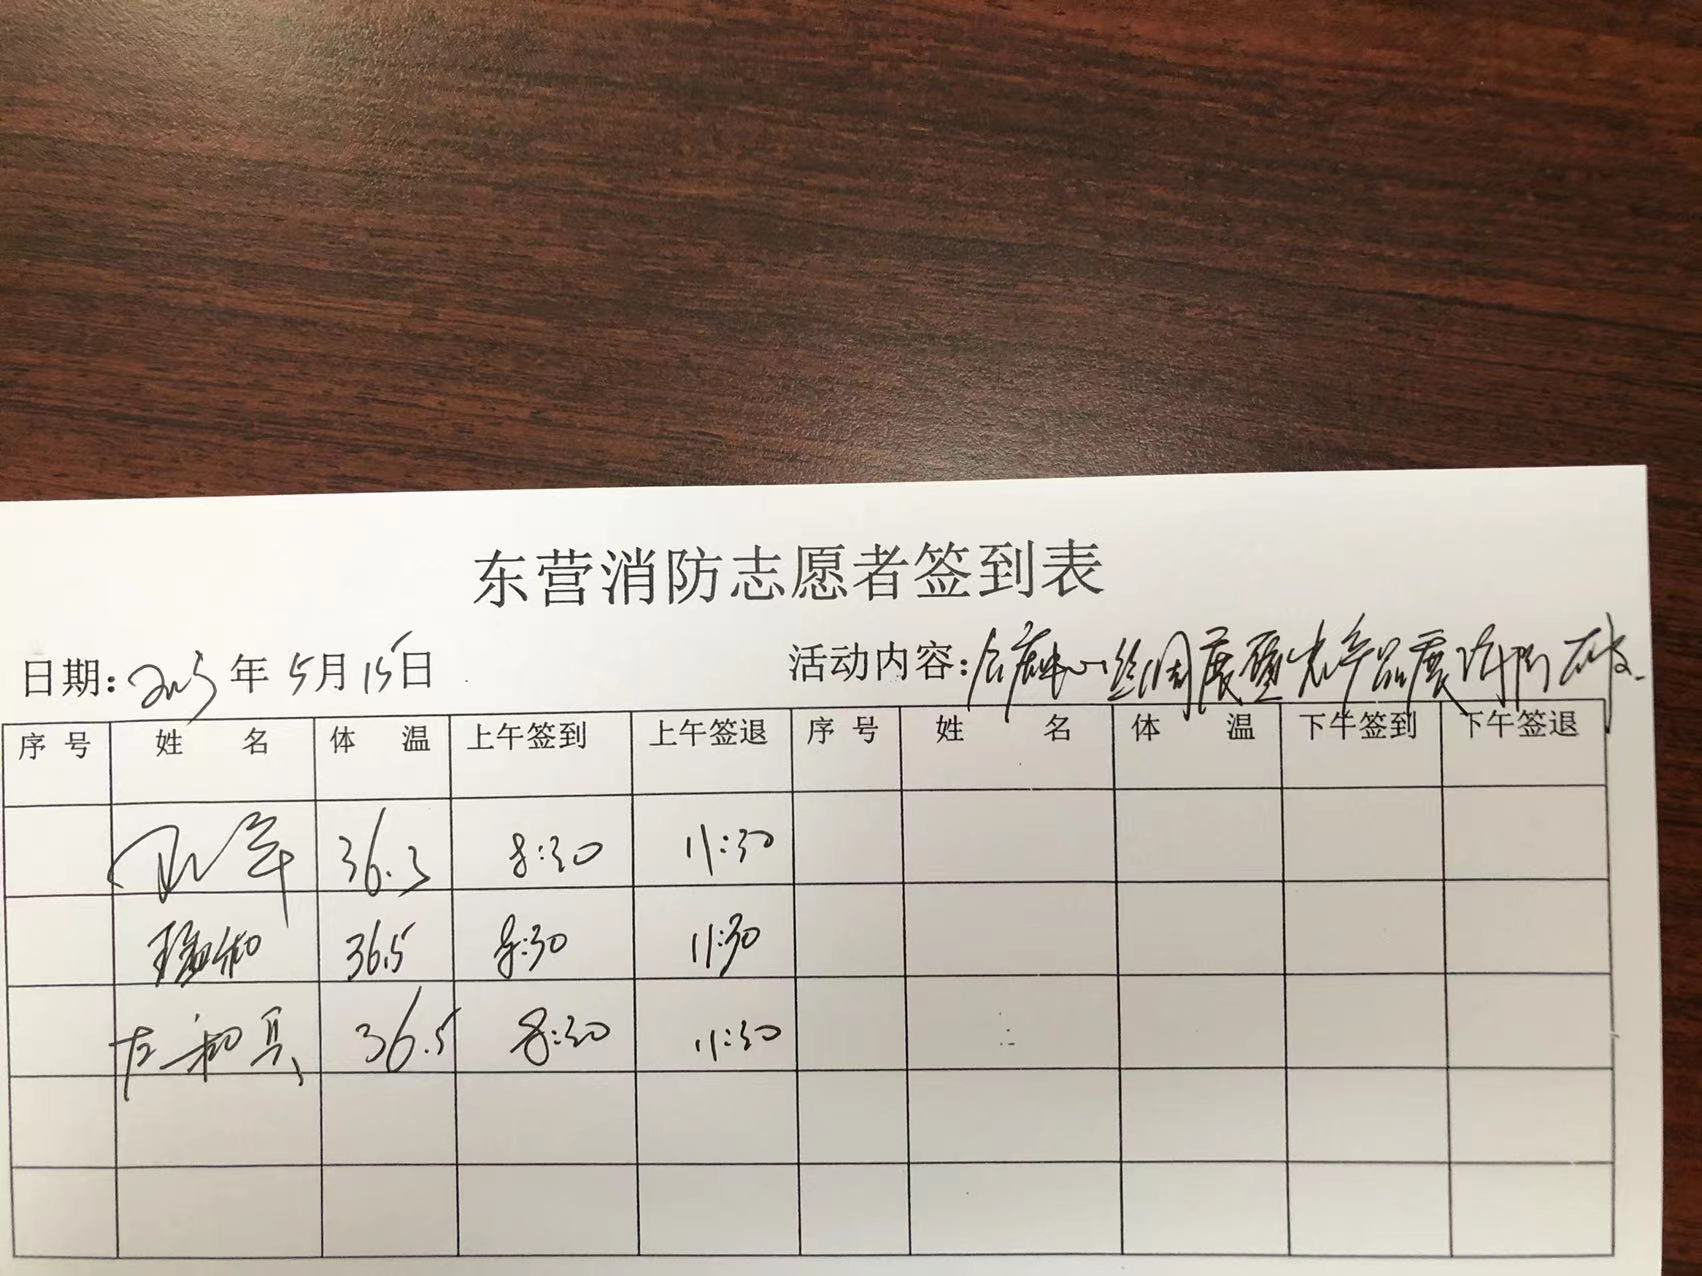 东营消防志愿者签到表
日期: 2023年5月15日 活动内容: 展 农产品展
序号 姓名 体温 上午签到 上午签退 序号 姓名 体温 下午签到 下午签退
36.3 8:30 11:30
36.5 8:30 11:30
36.5 8:30 11:30